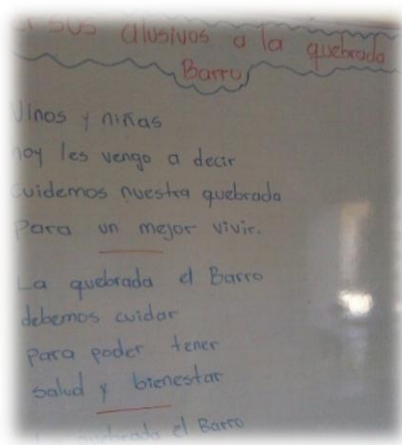 alusivos a la quebrada
Barro
niñas
les vengo a decir
cuidemos nuestra quebrada
Para un mejor vivir.
La quebrada el Barro
debemos cuidar
para poder tener
salud y bienestar
quebrada el Barro